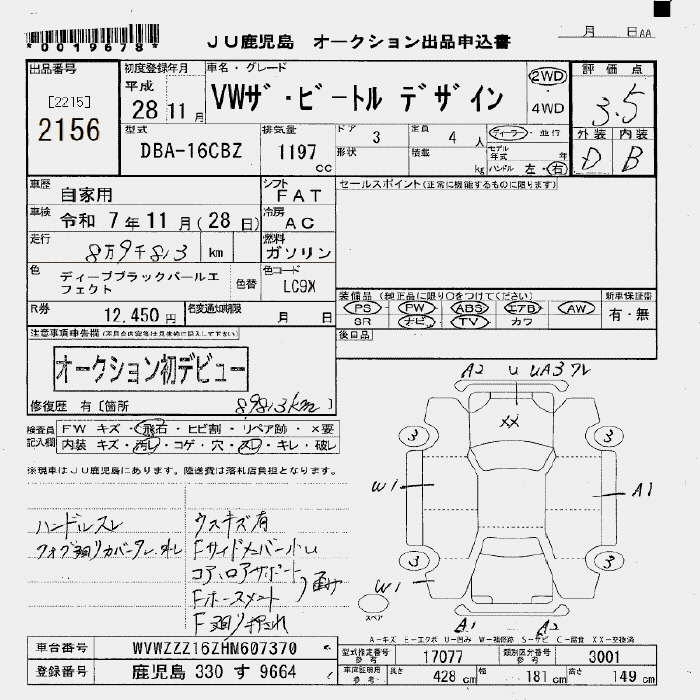 *0019678*
JU鹿児島 オークション出品申込書
月 日AA
出品番号
[2215]
2156
初度登録年月
平成
28 11 月
車名・グレード
VWザ・ビートル デザイン
2WD
・
4WD
評価点
3.5
外装 内装
D B
型式
DBA-16CBZ
排気量
1197 cc
ドア 3
定員 4 人
形状
積載 kg
ディーラー・並行
モデル年式 年
ハンドル 左・右
車歴
自家用
シフト
FAT
車検
令和 7年11月(28日)
冷房
AC
走行
8万9千813 km
燃料
ガソリン
色
ディープブラックパールエフェクト
色替
色コード
LC9X
R券
12,450 円
名変通知期限
月 日
セールスポイント(正常に機能するものに限ります)
装備品 (純正品に限り○をつけてください)
PS PW ABS エアB AW
SR ナビ TV カワ
新車保証書
有・無
後日品
注意事項申告欄
オークション初デビュー
修復歴 有[箇所 ]
89813km
検査員記入欄
FW キズ・飛石・ヒビ割・リペア跡・×要
内装 キズ・汚レ・コゲ・穴・スレ・キレ・破レ
※現車はJU鹿児島にあります。陸送費は落札店負担となります。
ハンドルスレ
ウスキズ有
Fサイドメンバー小u
コアロアサポート
Fホースメント
曲り
A2 U UA3
XX
3 3
W1
A1
3 3
W1
スペア
A1 A2
A-キズ E-エクボ U-凹み W-補修跡 S-サビ C-腐食 XX-交換済
車台番号
WVWZZZ16ZHM607370
登録番号
鹿児島 330 す 9664
型式指定番号
参考
17077
類別区分番号
参考
3001
車庫証明用
参考
長さ 428 cm
幅 181 cm
高さ 149 cm